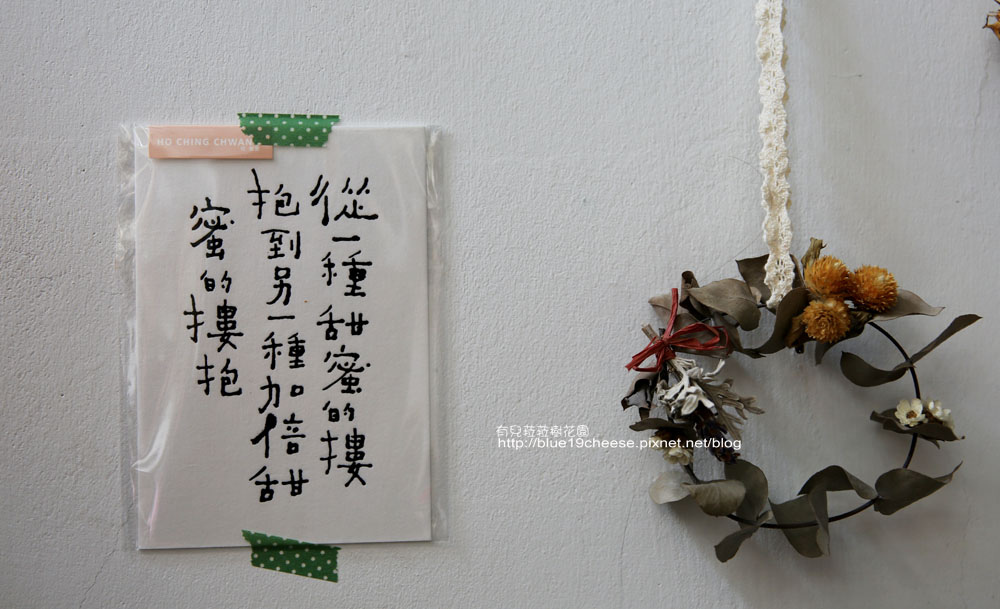 HO CHING CHWANG
從一種甜蜜的摟
抱到另一種加倍甜
蜜的摟抱
有兒菈菈樹花園
http://blue19cheese.pixnet.net/blog